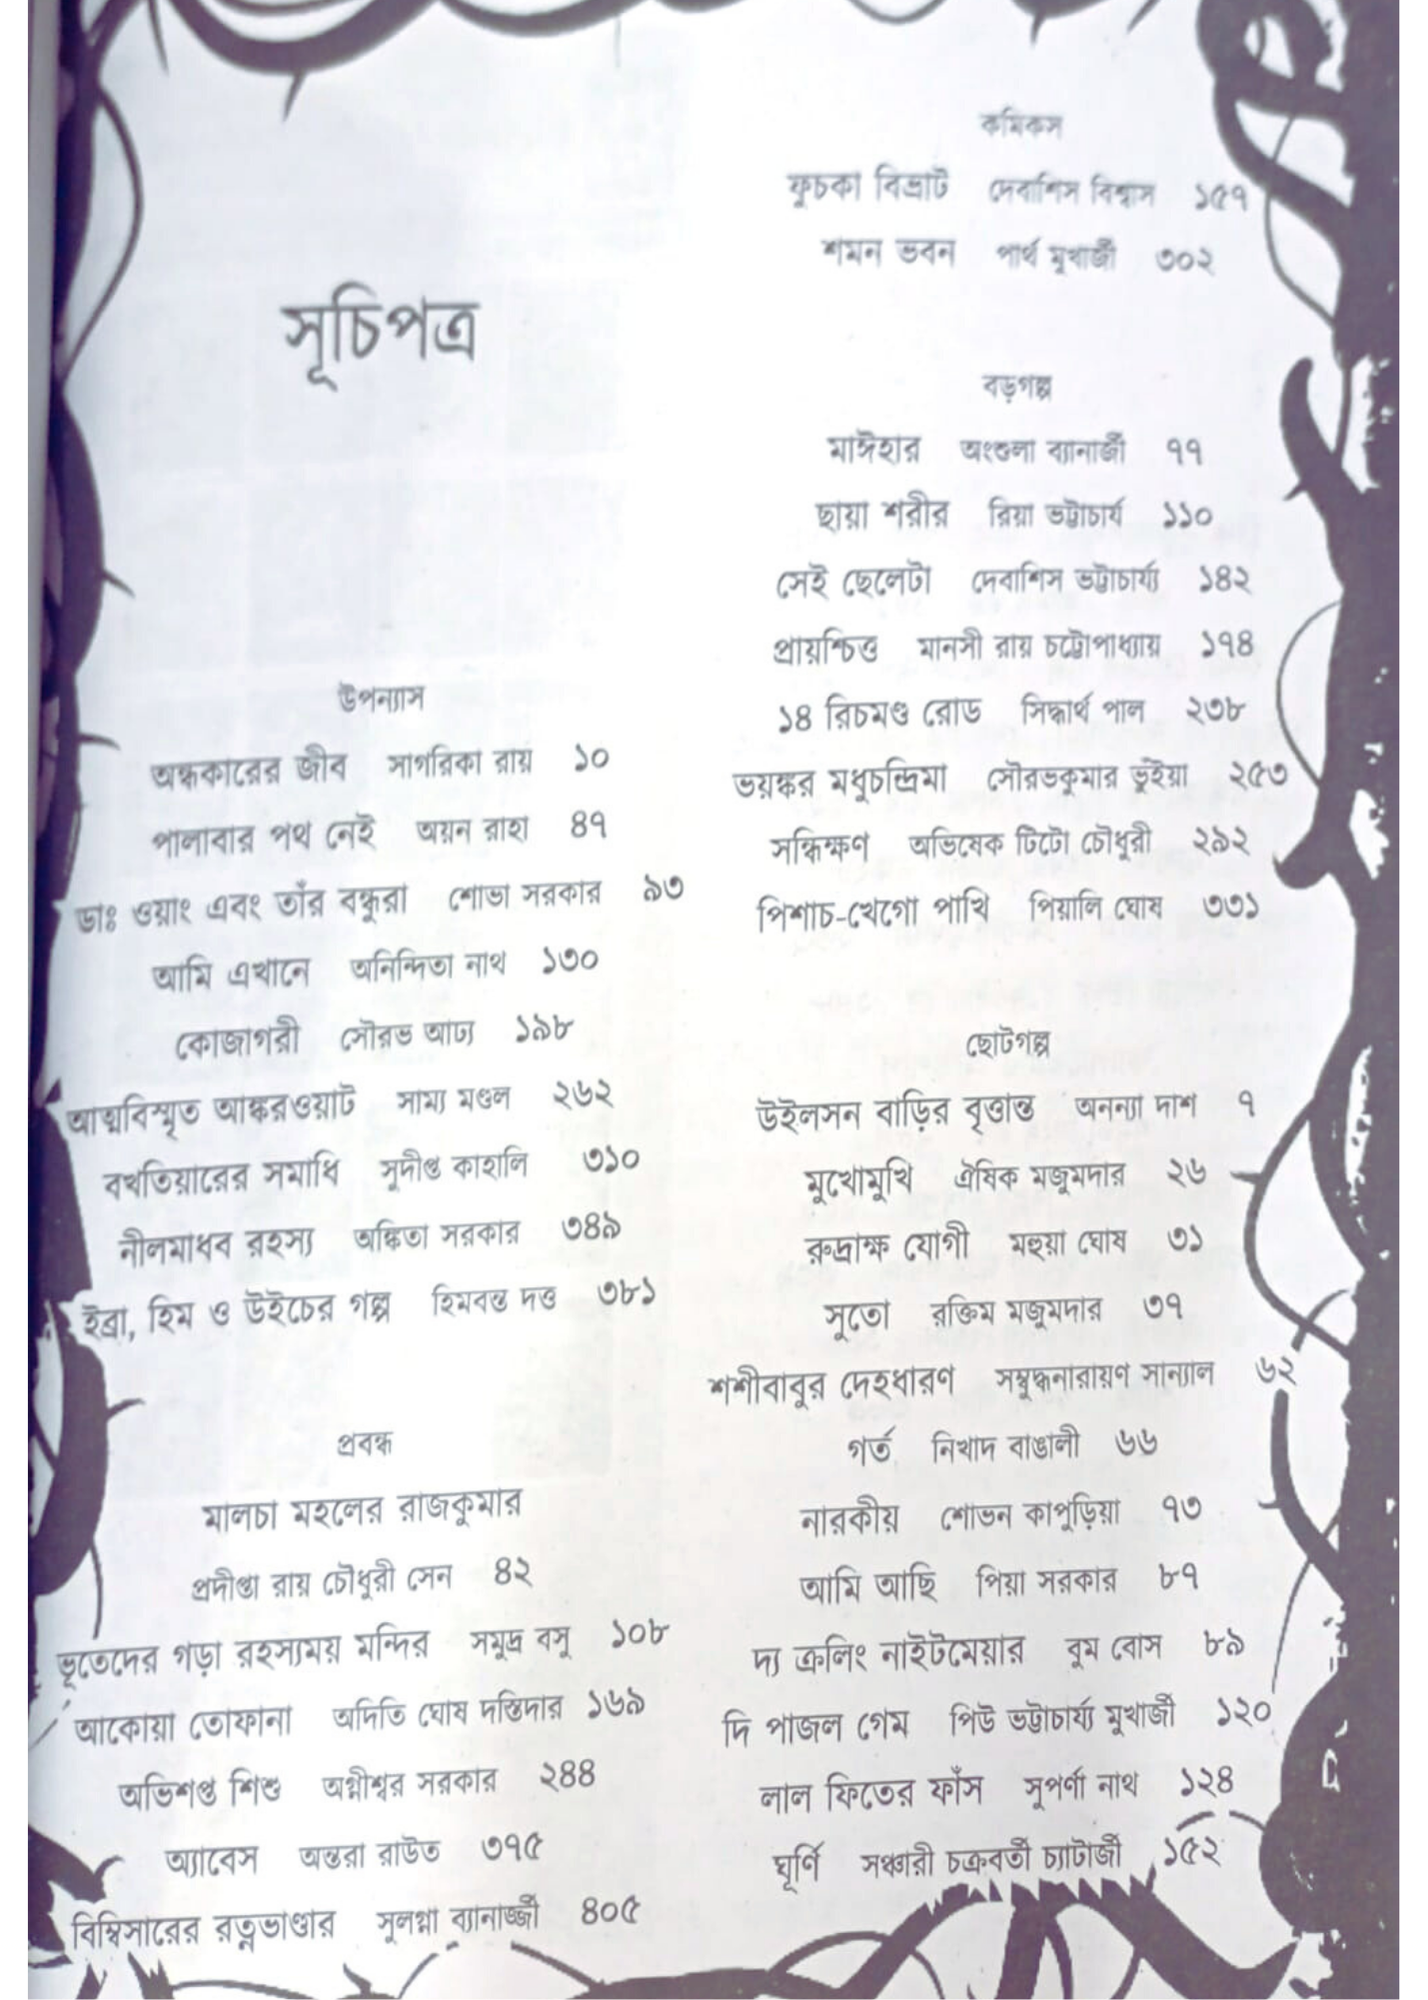 সূচিপত্র
উপন্যাস
অন্ধকারের জীব সাগরিকা রায় ১০
পালাবার পথ নেই অয়ন রাহা ৪৭
ডাঃ ওয়াং এবং তাঁর বন্ধুরা শোভা সরকার ৯৩
আমি এখানে অনিন্দিতা নাথ ১৩০
কোজাগরী সৌরভ আঢ্য ১৯৮
আত্মবিস্মৃত আঙ্করওয়াট সাম্য মণ্ডল ২৬২
বখতিয়ারের সমাধি সুদীপ্ত কাহালি ৩১০
নীলমাধব রহস্য অঙ্কিতা সরকার ৩৪৯
ইব্রা, হিম ও উইচের গল্প হিমবন্ত দত্ত ৩৮১
প্রবন্ধ
মালচা মহলের রাজকুমার
প্রদীপ্তা রায় চৌধুরী সেন ৪২
ভূতেদের গড়া রহস্যময় মন্দির সমুদ্র বসু ১০৮
আকোয়া তোফানা অদিতি ঘোষ দস্তিদার ১৬৯
অভিশপ্ত শিশু অগ্নীশ্বর সরকার ২৪৪
অ্যাবেস অন্তরা রাউত ৩৭৫
বিম্বিসারের রত্নভাণ্ডার সুলগ্না ব্যানার্জ্জী ৪০৫
কমিকস
ফুচকা বিভ্রাট দেবাশিস বিশ্বাস ১৫৭
শমন ভবন পার্থ মুখার্জী ৩০২
বড়গল্প
মাঈহার অংশুলা ব্যানার্জী ৭৭
ছায়া শরীর রিয়া ভট্টাচার্য ১১০
সেই ছেলেটা দেবাশিস ভট্টাচার্য্য ১৪২
প্রায়শ্চিত্ত মানসী রায় চট্টোপাধ্যায় ১৭৪
১৪ রিচমণ্ড রোড সিদ্ধার্থ পাল ২৩৮
ভয়ঙ্কর মধুচন্দ্রিমা সৌরভকুমার ভুইয়া ২৫৩
সন্ধিক্ষণ অভিষেক টিটো চৌধুরী ২৯২
পিশাচ-খেগো পাখি পিয়ালি ঘোষ ৩৩১
ছোটগল্প
উইলসন বাড়ির বৃত্তান্ত অনন্যা দাশ ৭
মুখোমুখি ঐষিক মজুমদার ২৬
রুদ্রাক্ষ যোগী মহুয়া ঘোষ ৩১
সুতো রক্তিম মজুমদার ৩৭
শশীবাবুর দেহধারণ সম্বুদ্ধনারায়ণ সান্যাল ৬২
গর্ত নিখাদ বাঙালী ৬৬
নারকীয় শোভন কাপুড়িয়া ৭৩
আমি আছি পিয়া সরকার ৮৭
দ্য ক্রলিং নাইটমেয়ার বুম বোস ৮৯
দি পাজল গেম পিউ ভট্টাচার্য্য মুখার্জী ১২০
লাল ফিতের ফাঁস সুপর্ণা নাথ ১২৪
ঘূর্ণি সঞ্চারী চক্রবর্তী চ্যাটার্জী ১৫২